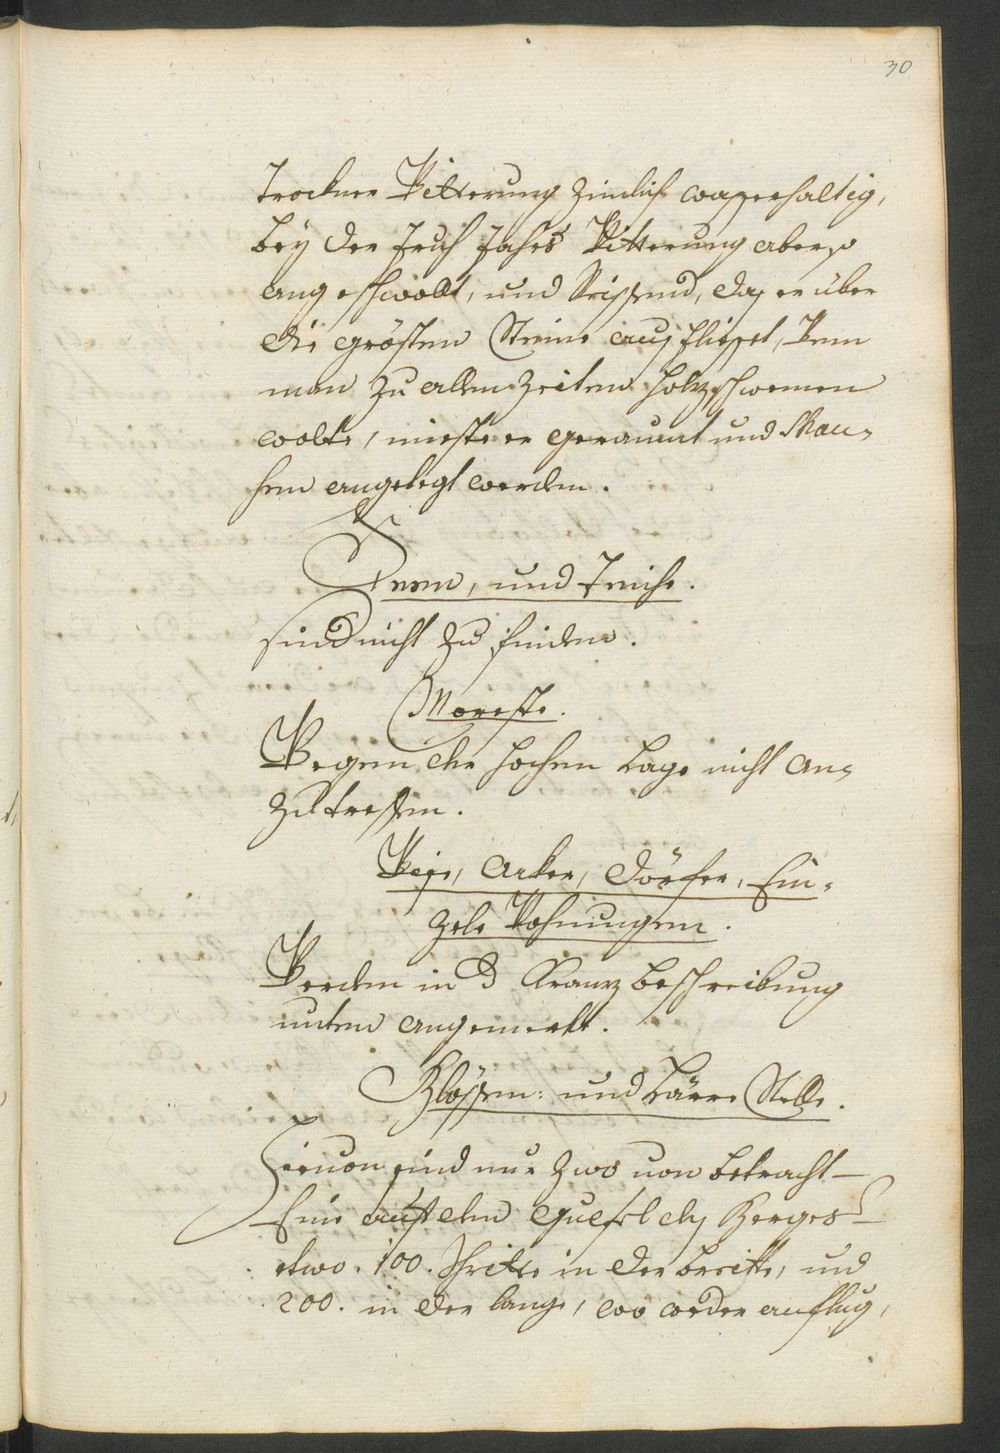 30
trockner Witterung zimlich waßerhaltig,
bey der Fruh Jahrs Witterung aber so
angeschwollt, und reissend, daß er über
die grösten Steine aus fliesset, Wenn
man zu allen Zeiten holz schwemen
wolte, mieste er geraumt und Klau-
sen angelegt werden.
Seen, und Teiche.
sind nicht zu finden.
Moräste.
Wegen der hochen Lage nicht an-
zutreffen.
Wise, Acker, Dörfer, Ein-
zele Wohnungen.
Werden in d Kranz beschreibung
unten angemerkt.
Blössen: und Lärre Stelle.
Hieuon sind nur zwo uon betracht
Eine auf dem Gipfel des Berges
etwo. 100. Schritte in der breitte, und
200. in der lange, wo weder anflug,